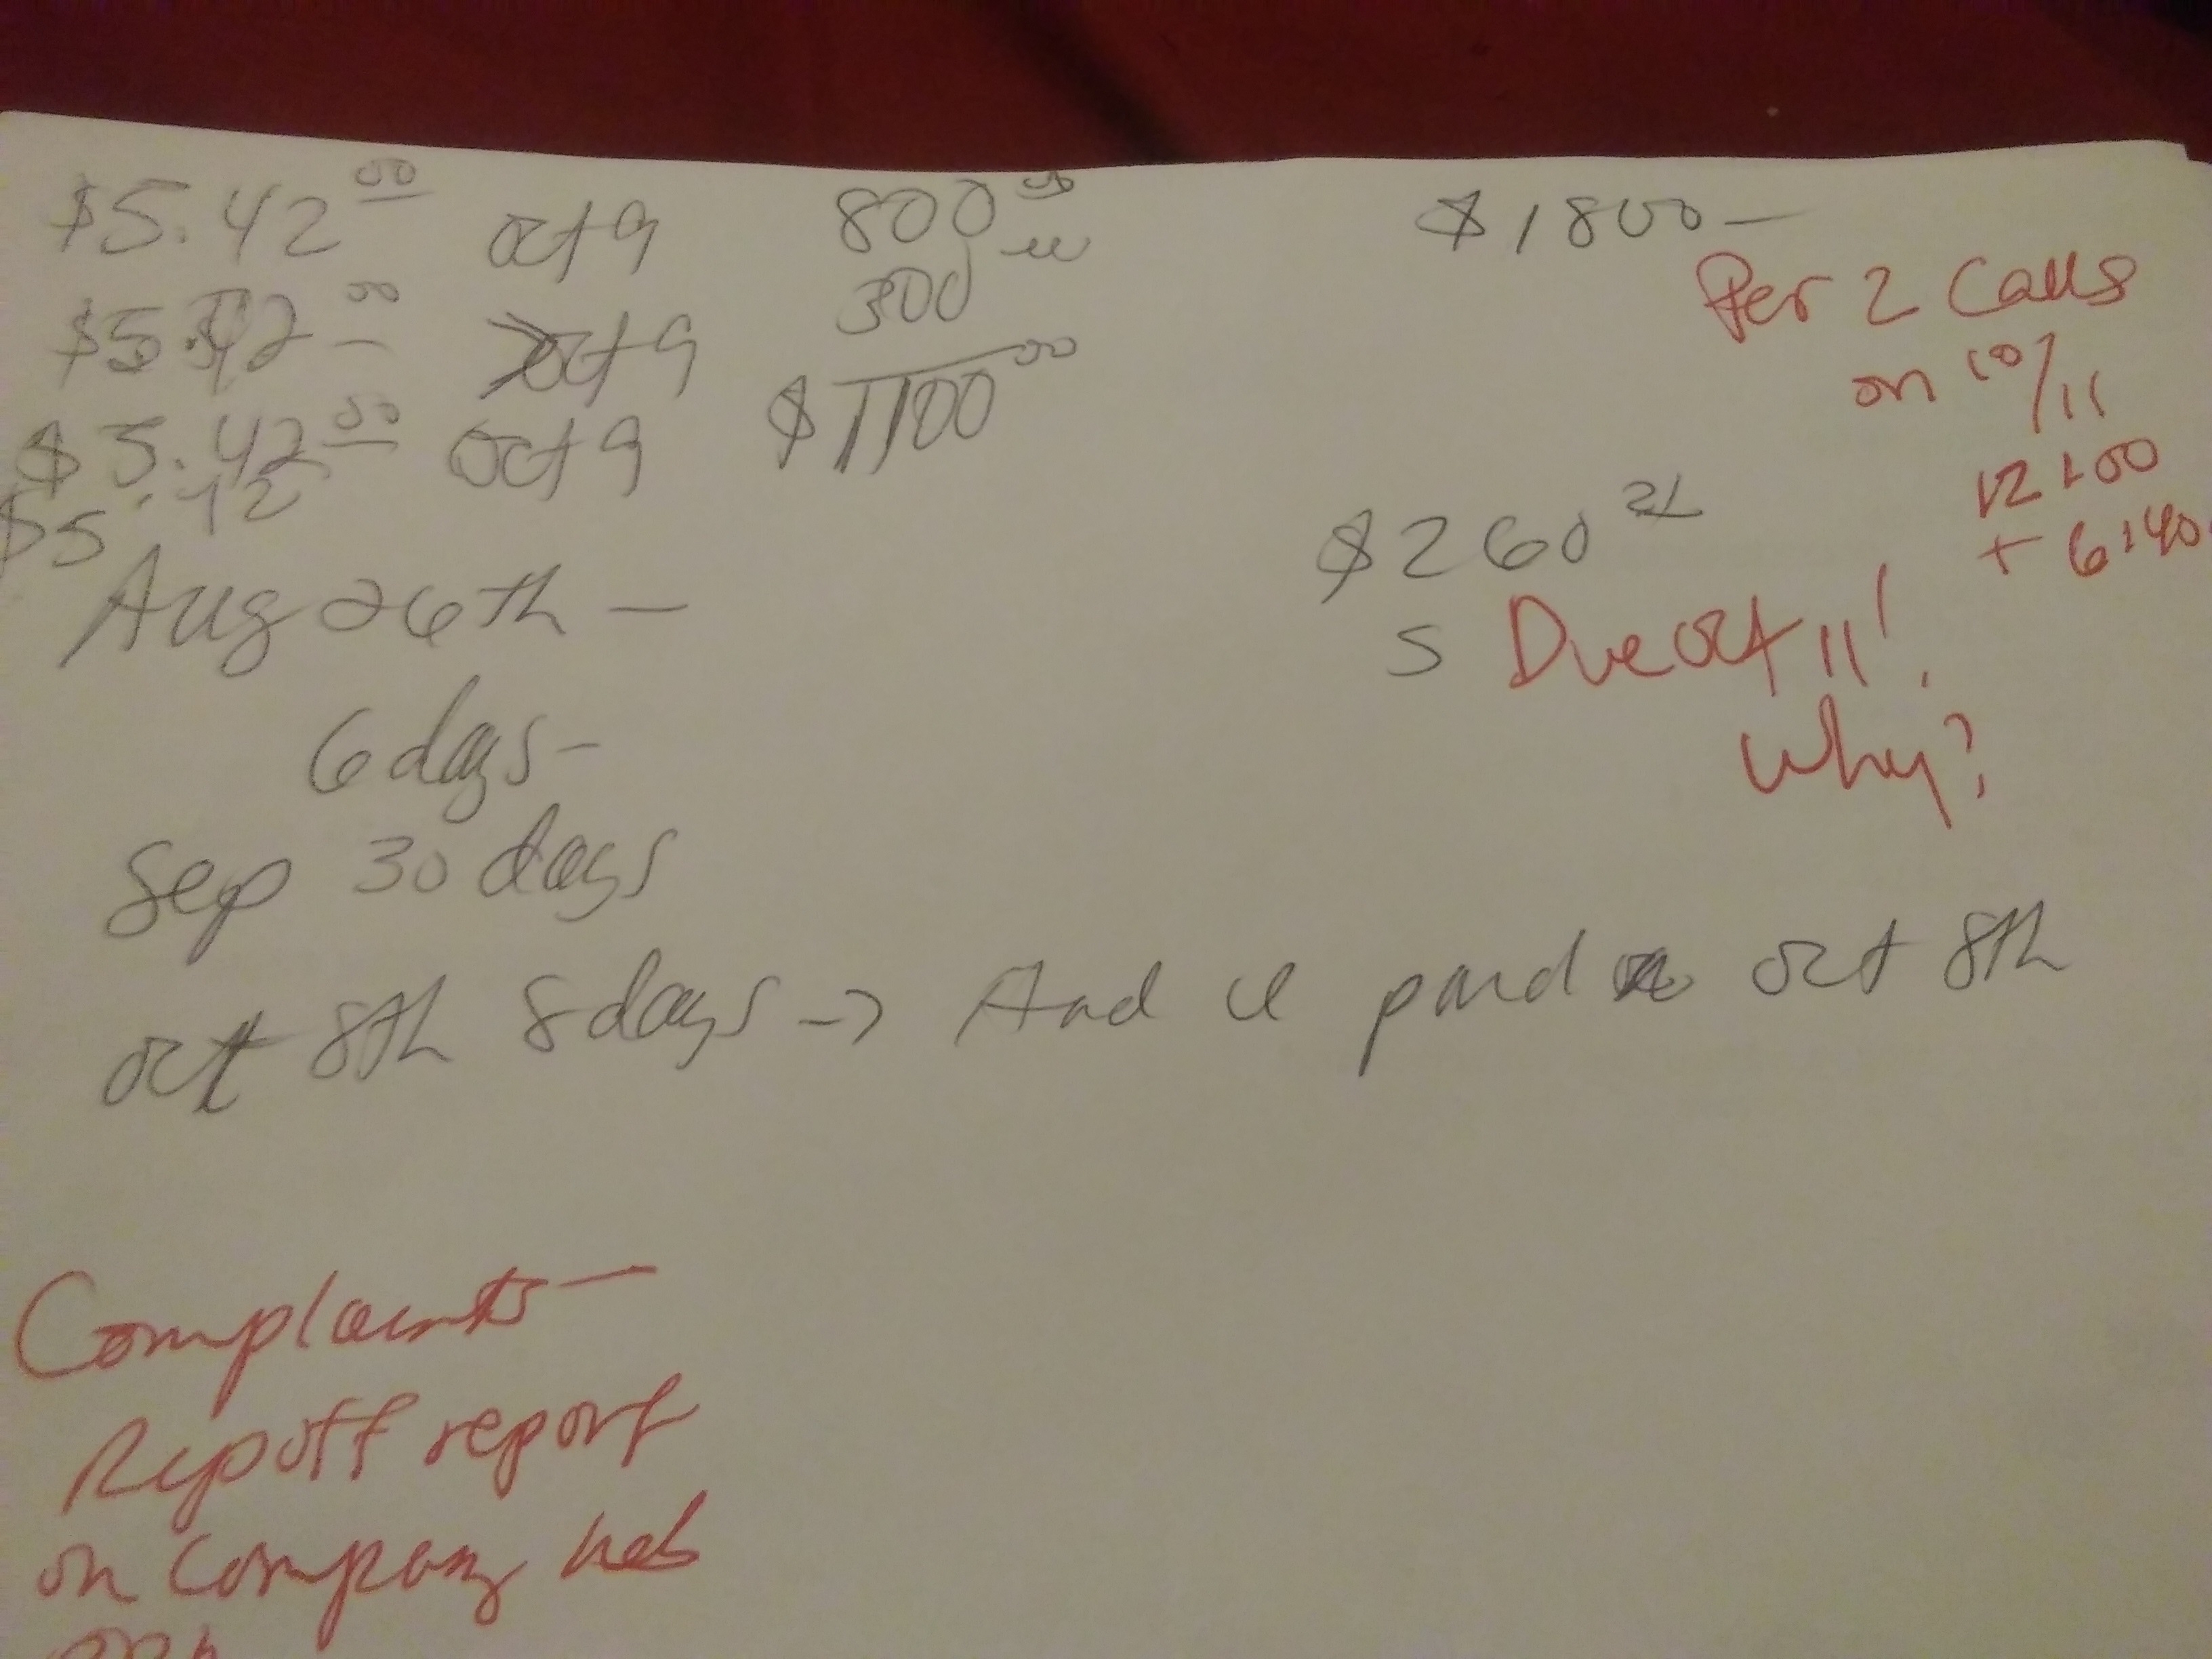 $5.42 00 oct 9
$5.42 00 oct 9
$5.42 00 oct 9
$5.42
800 00
300
$1100 00
$1800 —
Per 2 Calls
on 10/11
12:00
+ 6:40
$260
5 Due oct 11!
Why?
Aug 26th —
6 days -
Sep 30 days
oct 8th 8 days -> And paid oct 8th
Complaints —
Ripoff report
on company web